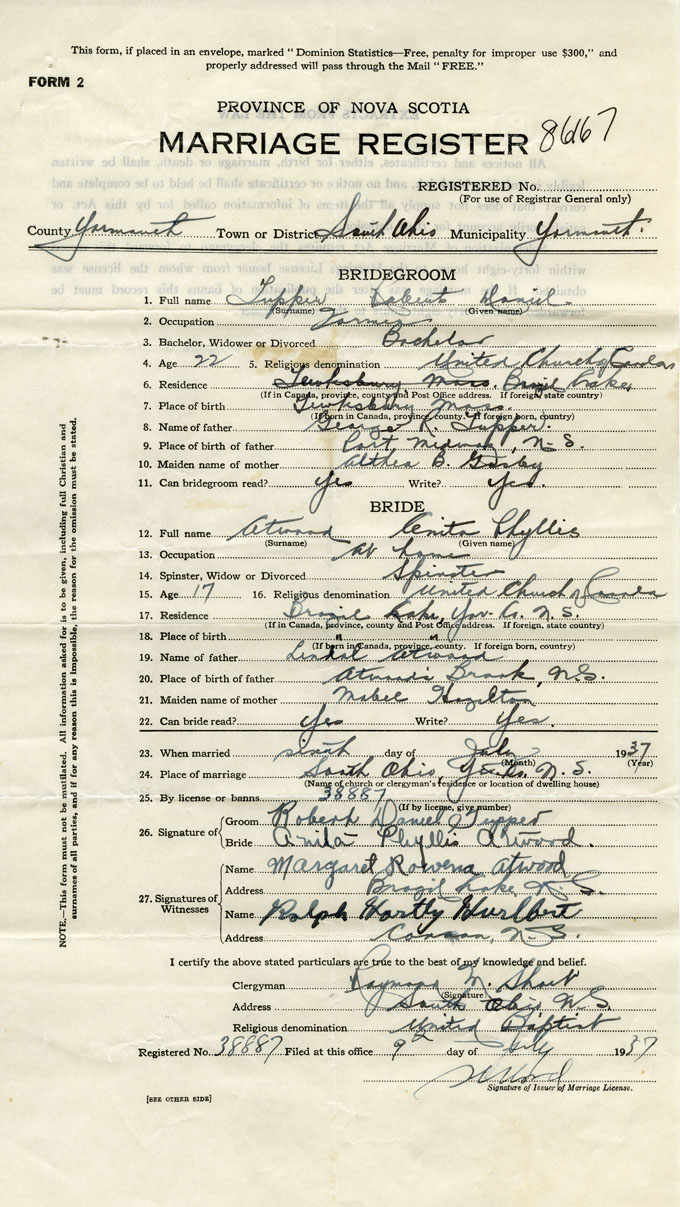 This form, if placed in an envelope, marked "Dominion Statistics—Free, penalty for improper use $300," and
properly addressed will pass through the Mail "FREE."
FORM 2
PROVINCE OF NOVA SCOTIA
MARRIAGE REGISTER
REGISTERED No.
(For use of Registrar General only)
County Yarmouth Town or District South Ohio Municipality Yarmouth.
BRIDEGROOM
1. Full name Tupper Robert Daniel
(Surname) (Given name)
2. Occupation Farmer
3. Bachelor, Widower or Divorced Bachelor
4. Age 22 5. Religious denomination United Church of Canada
6. Residence Tewksbury Mass. Brazil Lake
(If in Canada, province, county and Post Office address. If foreign, state country)
7. Place of birth Tewksbury Mass.
(If born in Canada, province, county. If foreign born, country)
8. Name of father George R. Tupper.
9. Place of birth of father Port Medway, N.S.
10. Maiden name of mother Althea B.
11. Can bridegroom read? yes Write? yes.
BRIDE
12. Full name Atwood Anita Phyllis
(Surname) (Given name)
13. Occupation At home
14. Spinster, Widow or Divorced Spinster
15. Age 17 16. Religious denomination United Church of Canada
17. Residence Brazil Lake, Yar. Co. N.S.
(If in Canada, province, county and Post Office address. If foreign, state country)
18. Place of birth " "
(If born in Canada, province, county. If foreign born, country)
19. Name of father Atwood
20. Place of birth of father Atwood's Brook, N.S.
21. Maiden name of mother Mabel Hamilton
22. Can bride read? yes Write? yes.
23. When married sixth day of July 1937
(Month) (Year)
24. Place of marriage South Ohio, Yar. Co. N.S.
(Name of church or clergyman's residence or location of dwelling house)
25. By license or banns 38887
(If by license, give number)
26. Signature of Groom Robert Daniel Tupper
Bride Anita Phyllis Atwood.
27. Signatures of Witnesses
Name Margaret Rowena Atwood
Address Brazil Lake, N.S.
Name Ralph Hartly Hurlbert
Address N.S.
I certify the above stated particulars are true to the best of my knowledge and belief.
Clergyman Raymond M. Short
(Signature)
Address South Ohio N.S.
Religious denomination United Baptist
Registered No. 38887 Filed at this office 9th day of July 1937
Signature of Issuer of Marriage License.
[SEE OTHER SIDE]
NOTE.—This form must not be mutilated. All information asked for is to be given, including full Christian and
surnames of all parties, and if for any reason this is impossible, the reason for the omission must be stated.